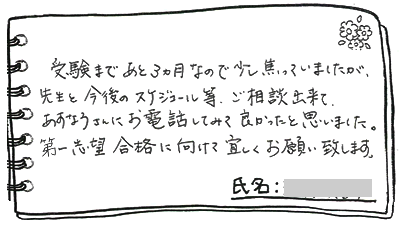 受験まであと3ヵ月なので少し焦っていましたが、
先生と今後のスケジュール等、ご相談出来て、
あすなろさんにお電話してみて良かったと思いました。
第一志望合格に向けて宜しくお願い致します。
氏名：